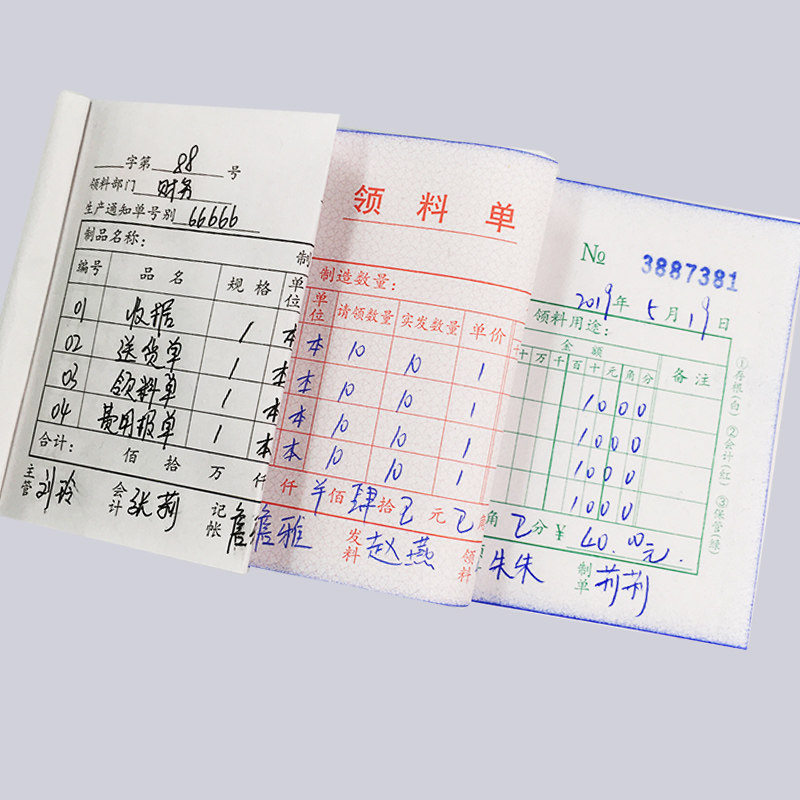 字第 88 号
领料部门 财务
生产通知单号别 66666
制品名称： 制
编号 品名 规格 单位
01 收据 1 本
02 送货单 1 本
03 领料单 1 本
04 费用报单 1 本
合计： 佰 拾 万 仟
主管 刘玲 会计 张莉 记帐 詹
领料单
制造数量：
单位 请领数量 实发数量 单价
本 10 10 1
本 10 10 1
本 10 10 1
本 10 10 1
仟 佰 肆 拾 元 角
詹雅 发料 赵燕 领料
№ 3887381
2019年 5月19日
领料用途：
金额 备注
十万千百十元角分
1000
1000
1000
1000
角 分 ¥ 40.00元.
朱朱 制单 莉莉
①存根(白) ②会计(红) ③保管(绿)